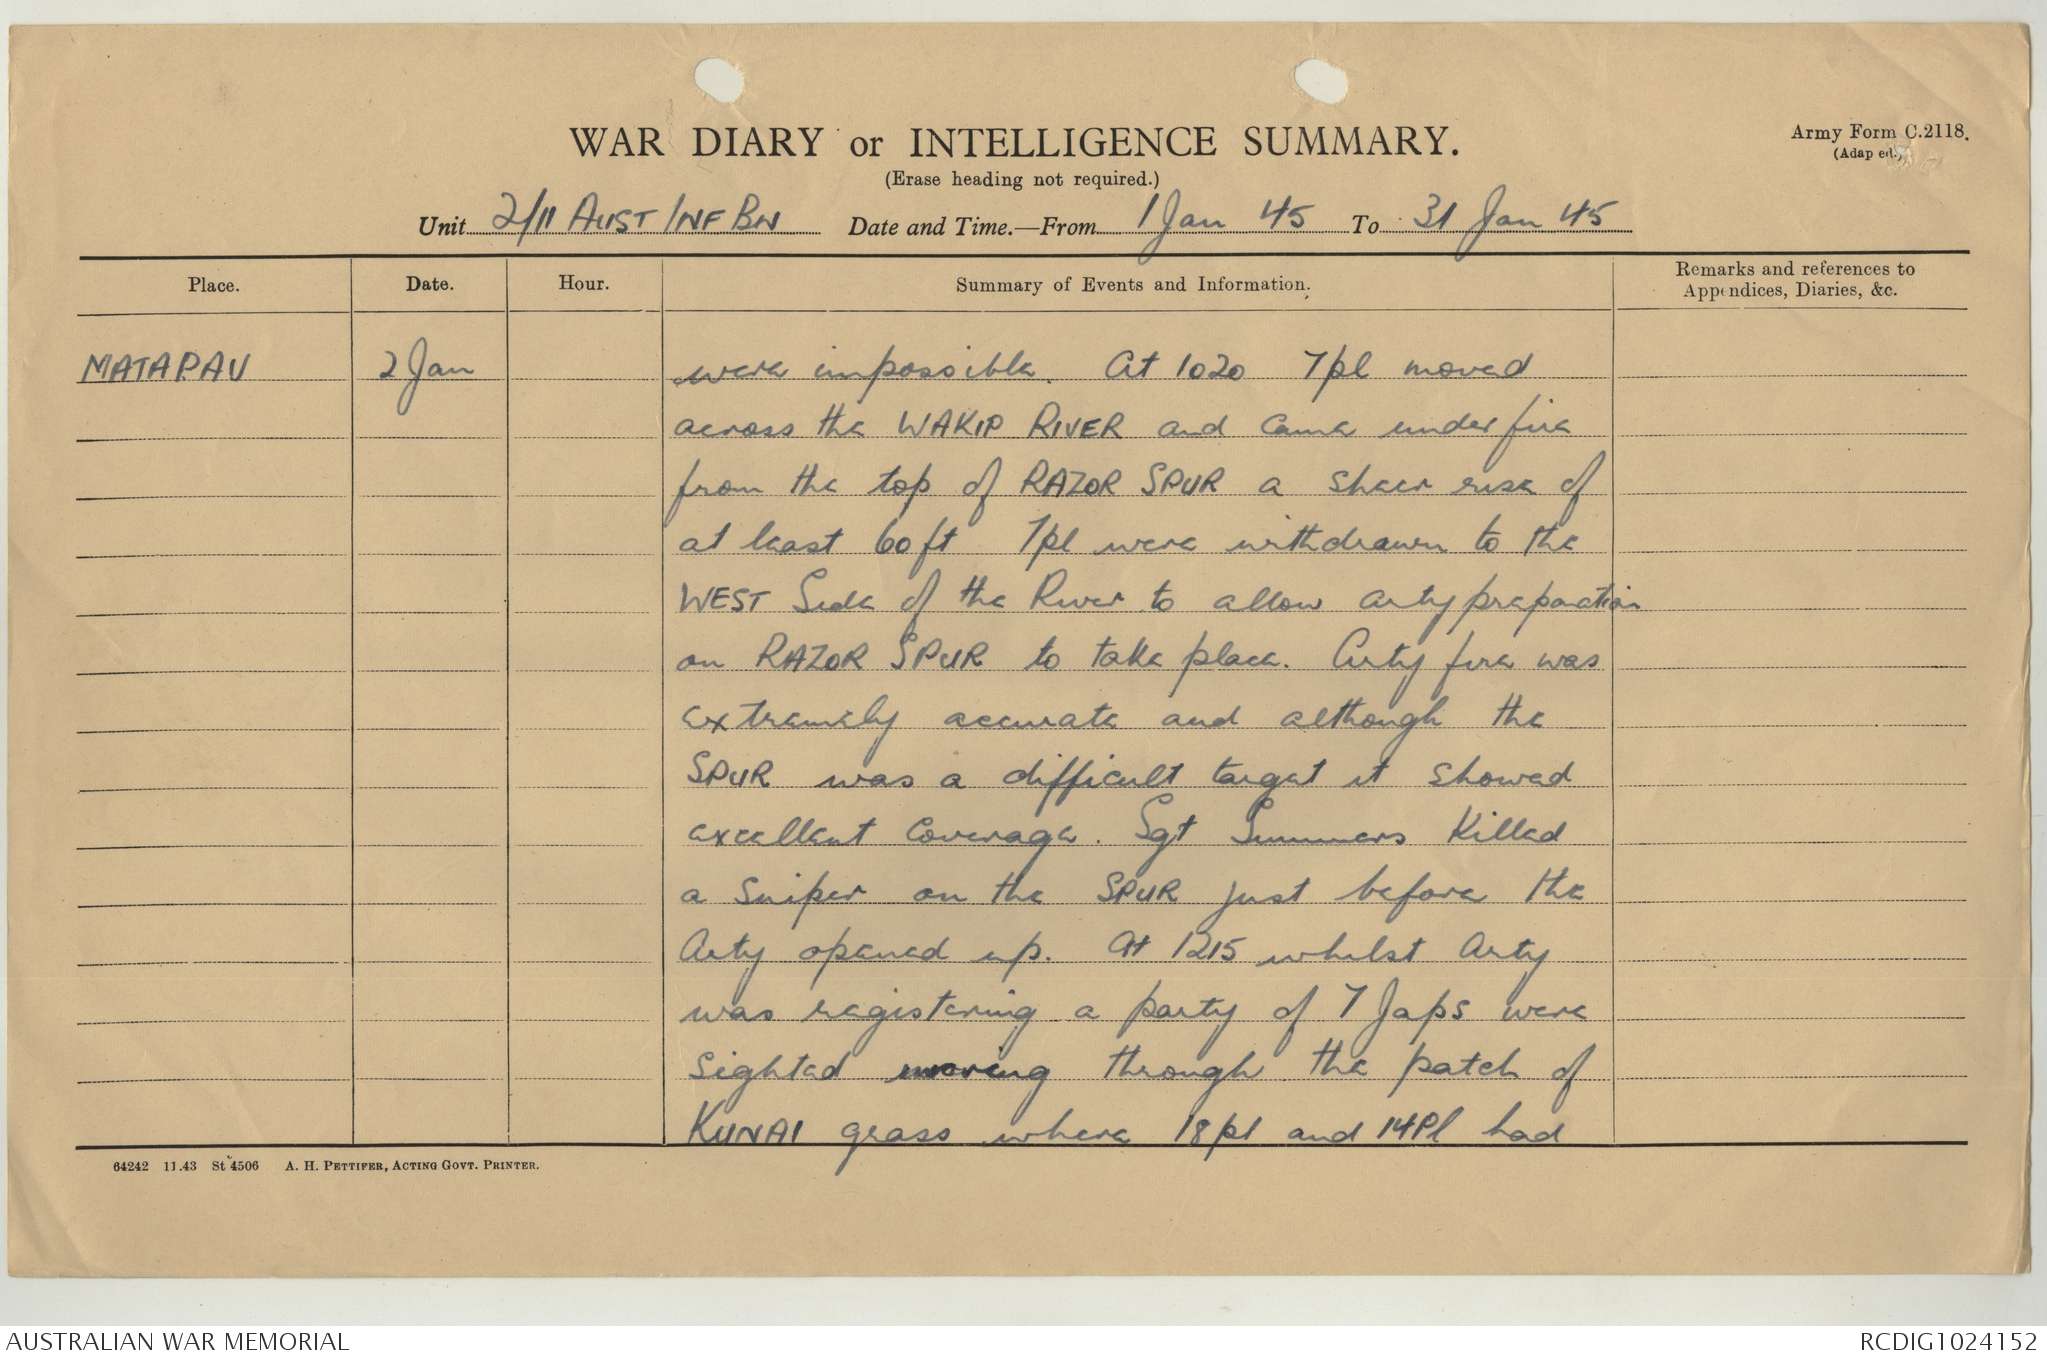 WAR DIARY or INTELLIGENCE SUMMARY.
Army Form C.2118.
(Erase heading not required.)
(Adap ed.)
Unit 2/11 AUST INF BN Date and Time.—From 1 Jan 45 To 31 Jan 45
Place. Date. Hour. Summary of Events and Information. Remarks and references to
Appendices, Diaries, &c.
MATAPAU 2 Jan were impossible. At 1020 7pl moved
across the WAKIP RIVER and came under fire
from the top of RAZOR SPUR a sheer rise of
at least 60ft 7pl were withdrawn to the
WEST Side of the River to allow arty preparation
on RAZOR SPUR to take place. Arty fire was
extremely accurate and although the
SPUR was a difficult target it showed
excellent coverage. Sgt Summers killed
a sniper on the SPUR just before the
Arty opened up. At 1215 whilst Arty
was registering a party of 7 Japs were
sighted moving through the patch of
KUNAI grass where 18pl and 14Pl had
64242 11.43 St 4506 A. H. PETTIFER, ACTING GOVT. PRINTER.
AUSTRALIAN WAR MEMORIAL
RCDIG1024152